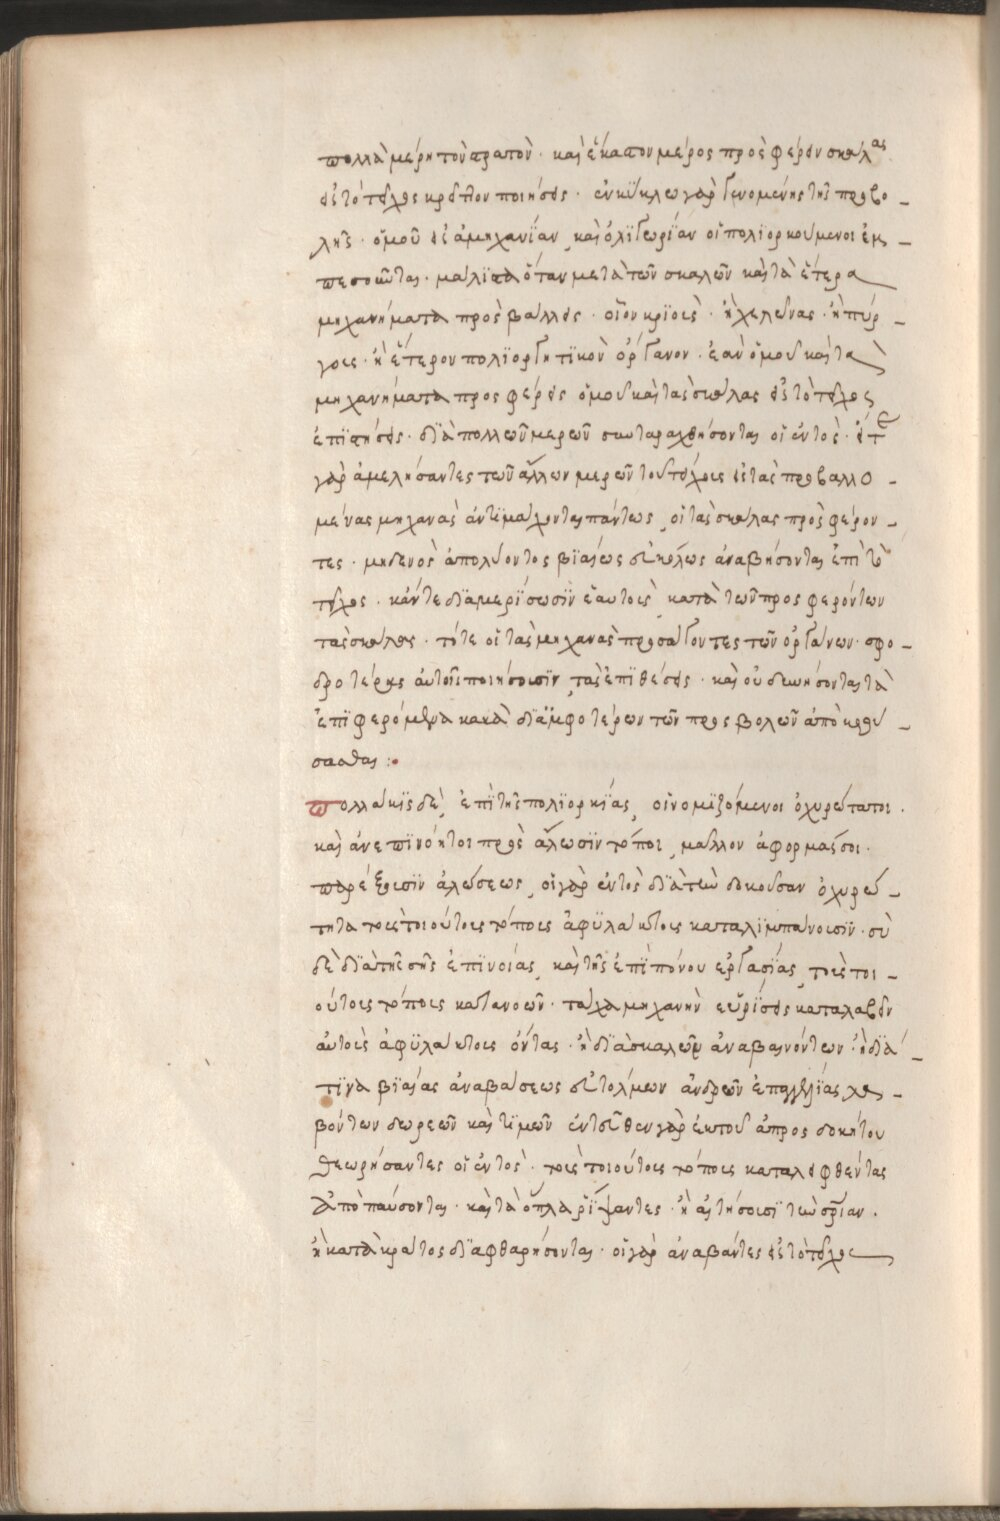 πολλὰ μέρη τὸν στρατὸν · καὶ ἕκαστον μέρος προσφέρειν σκάλας
εἰς τὸ τεῖχος κρεῖττον ποιήσεις · ἐν κύκλω γὰρ γενομένης τῆς προσβο-
λῆς · ὁμοῦ εἰς ἀμηχανίαν, καὶ ὀλιγωρίαν οἱ πολιορκούμενοι ἐκ-
πεσοῦνται · μάλιστα ὅταν μετὰ τῶν σκαλῶν καὶ τὰ ἕτερα
μηχανήματα προσβάλλης · οἷον κριοὺς · ἢ χελώνας · ἢ πύρ-
γους · ἢ ἕτερον πολιορκητικὸν ὄργανον · ἐὰν ὁμοῦ καὶ τὰ
μηχανήματα προσφέρης ὁμοῦ καὶ τὰς σκάλας εἰς τὸ τεῖχος
ἐπιστήσης · διὰ πολλῶν μερῶν συνταραχθήσονται οἱ ἐντός · εἴτε
γὰρ ἀμελήσαντες τῶν ἄλλων μερῶν τοῦ τείχους εἰς τὰς προσβαλλο-
μένας μηχανὰς ἀντιμάχονται πάντως, οἱ τὰς σκάλας προσφέρον-
τες · μηδενὸς ἀπολύοντος βιαίως εὐκόλως ἀναβήσονται ἐπὶ τὸ
τεῖχος · κἄν τε διαμερίσωσιν ἑαυτοὺς κατὰ τῶν προσφερόντων
τὰς σκάλας · τότε οἱ τὰς μηχανὰς προσάγοντες τῶν ὀργάνων · σφο-
δροτέρας αὐτοῖς ποιήσουσιν, τὰς ἐπιθέσεις · καὶ οὐ δυνήσονται τὰ
ἐπιφερόμενα κακὰ δι' ἀμφοτέρων τῶν προσβολῶν ἀποκρού-
σασθαι :·
Πολλάκις δὲ, ἐπὶ τῆς πολιορκίας, οἱ νομιζόμενοι ὀχυρώτατοι ·
καὶ ἀνεπινόητοι πρὸς ἅλωσιν τόποι, μᾶλλον ἀφορμάς σοι ·
παρέξουσιν ἁλώσεως, οἱ γὰρ ἐντὸς διὰ τὴν δοκοῦσαν ὀχυρό-
τητα τοὺς τοιούτους τόπους ἀφυλάκτους καταλιμπάνουσιν · σὺ
δὲ διὰ τῆς σῆς ἐπινοίας, καὶ τῆς ἐπιπόνου ἐργασίας, τοὺς τοι-
ούτους τόπους κατανοῶν · τάχα μηχανὴν εὑρήσεις καταλαβεῖν
αὐτοὺς ἀφυλάκτους ὄντας · ἢ διὰ σκαλῶν ἀναβαινόντων · ἢ διά
τινα βιαίας ἀναβάσεως εὐτόλμων ἀνδρῶν ἐπαγγελίας λα-
βόντων δωρεῶν καὶ τιμῶν ἐντεῦθεν γὰρ ἐκ τοῦ ἀπροσδοκήτου
θεωρήσαντες οἱ ἐντὸς · τοὺς τοιούτους τόπους καταληφθέντας
ἀποπαύσονται · καὶ τὰ ὅπλα ῥίψαντες · ἢ αἰτήσουσι τὴν σωτηρίαν ·
ἢ κατὰ κράτος διαφθαρήσονται · οἱ γὰρ ἀναβάντες εἰς τὸ τεῖχος